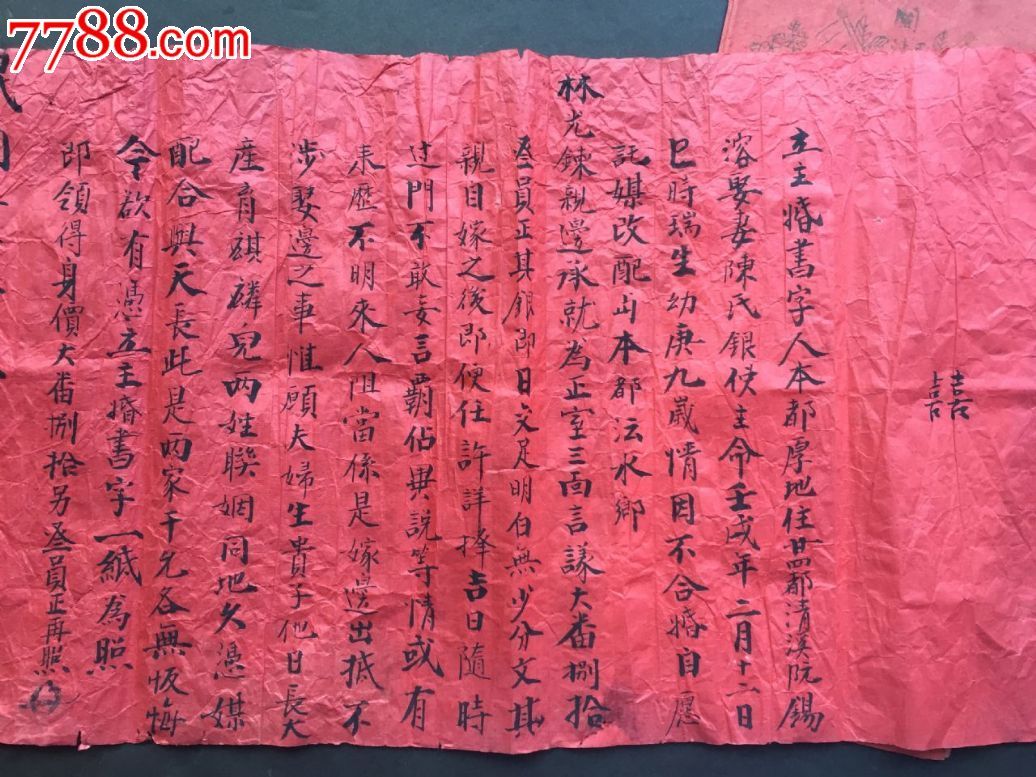 7788.com
囍
立主婚書字人本都厚地住昔都清溪阮錫
溶娶妻陳氏銀使主命壬戍年二月十二日
巳時瑞生幼庚九歲情因不合婚自愿
託媒改配与本都沄水鄉
林光鍊親邊承就為正室三面言議大番捌拾
叁員正其銀即日交足明白無少分文其
親自嫁之後即便任許詳擇吉日隨時
过門不敢妄言覇佔異說等情或有
来歷不明來人阻當係是嫁邊出抵不
涉娶邊之事惟願夫婦生貴子他日長大
產育麒麟兒兩姓聯姻同地久憑媒
配合與天長此是兩家干允各無恢悔
今欲有憑立主婚書字一紙為照
即領得身價大番捌拾另叁員正再照